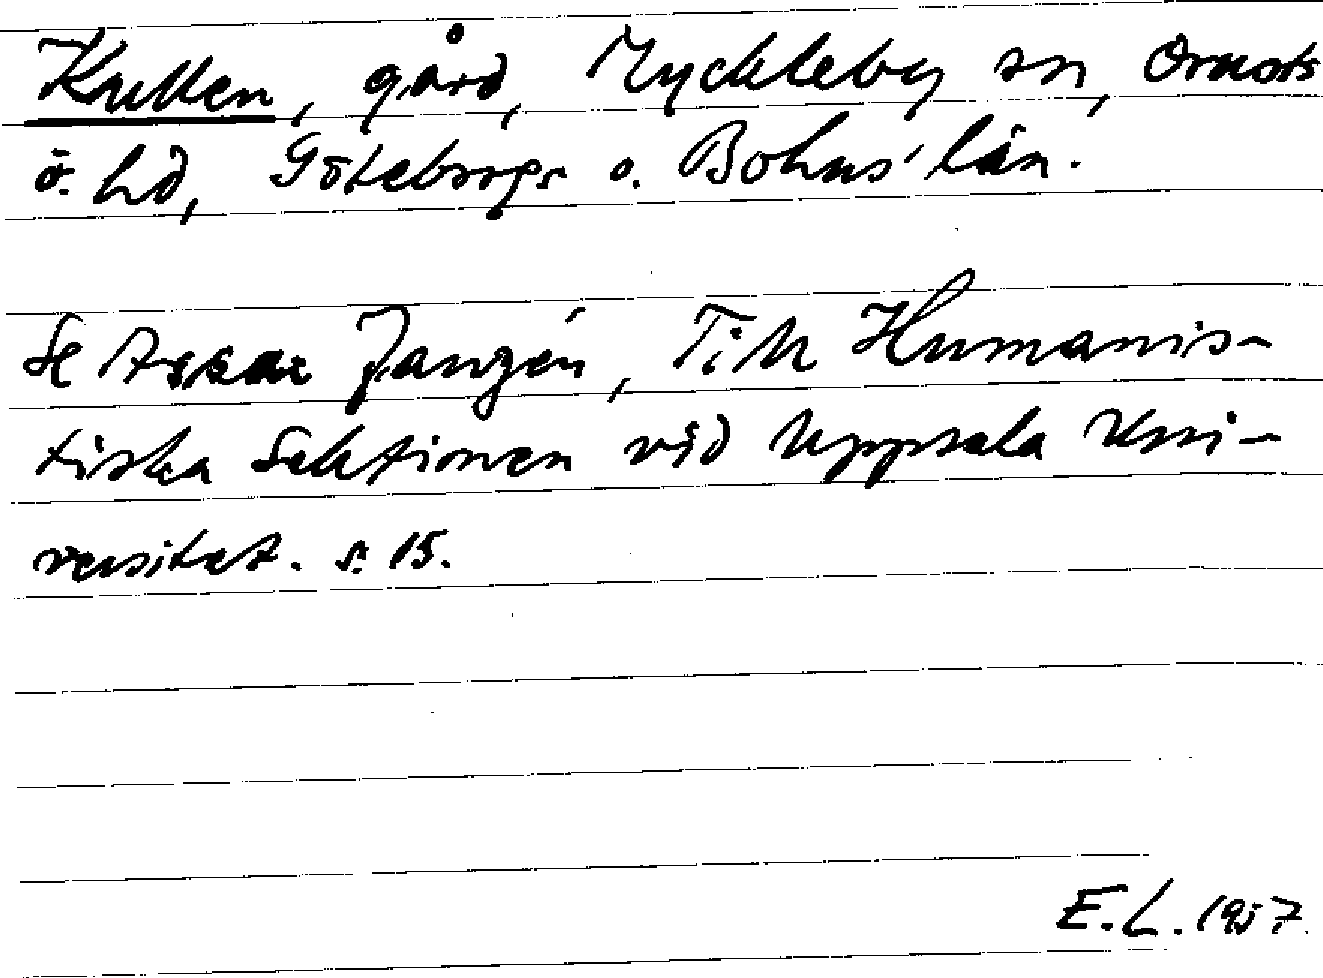 Kullen, gård, Myckleby sn, Orusts
ö. hd, Göteborgs o. Bohus' län.
Se Assar Janzén, Till Humanis-
tiska Sektionen vid Uppsala Uni-
versitet. s. 15.
E.L. 1957.